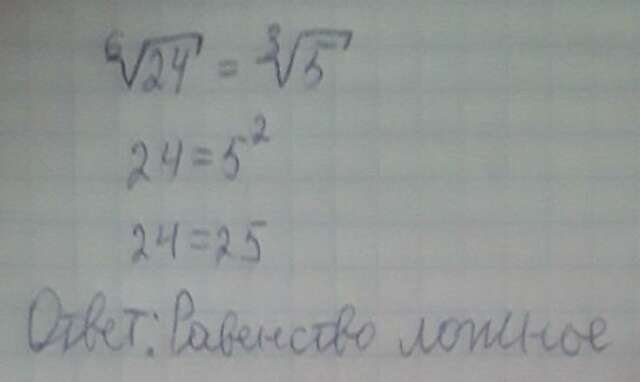 ⁶√24 = ³√5
24 = 5²
24 = 25
Ответ: Равенство ложное